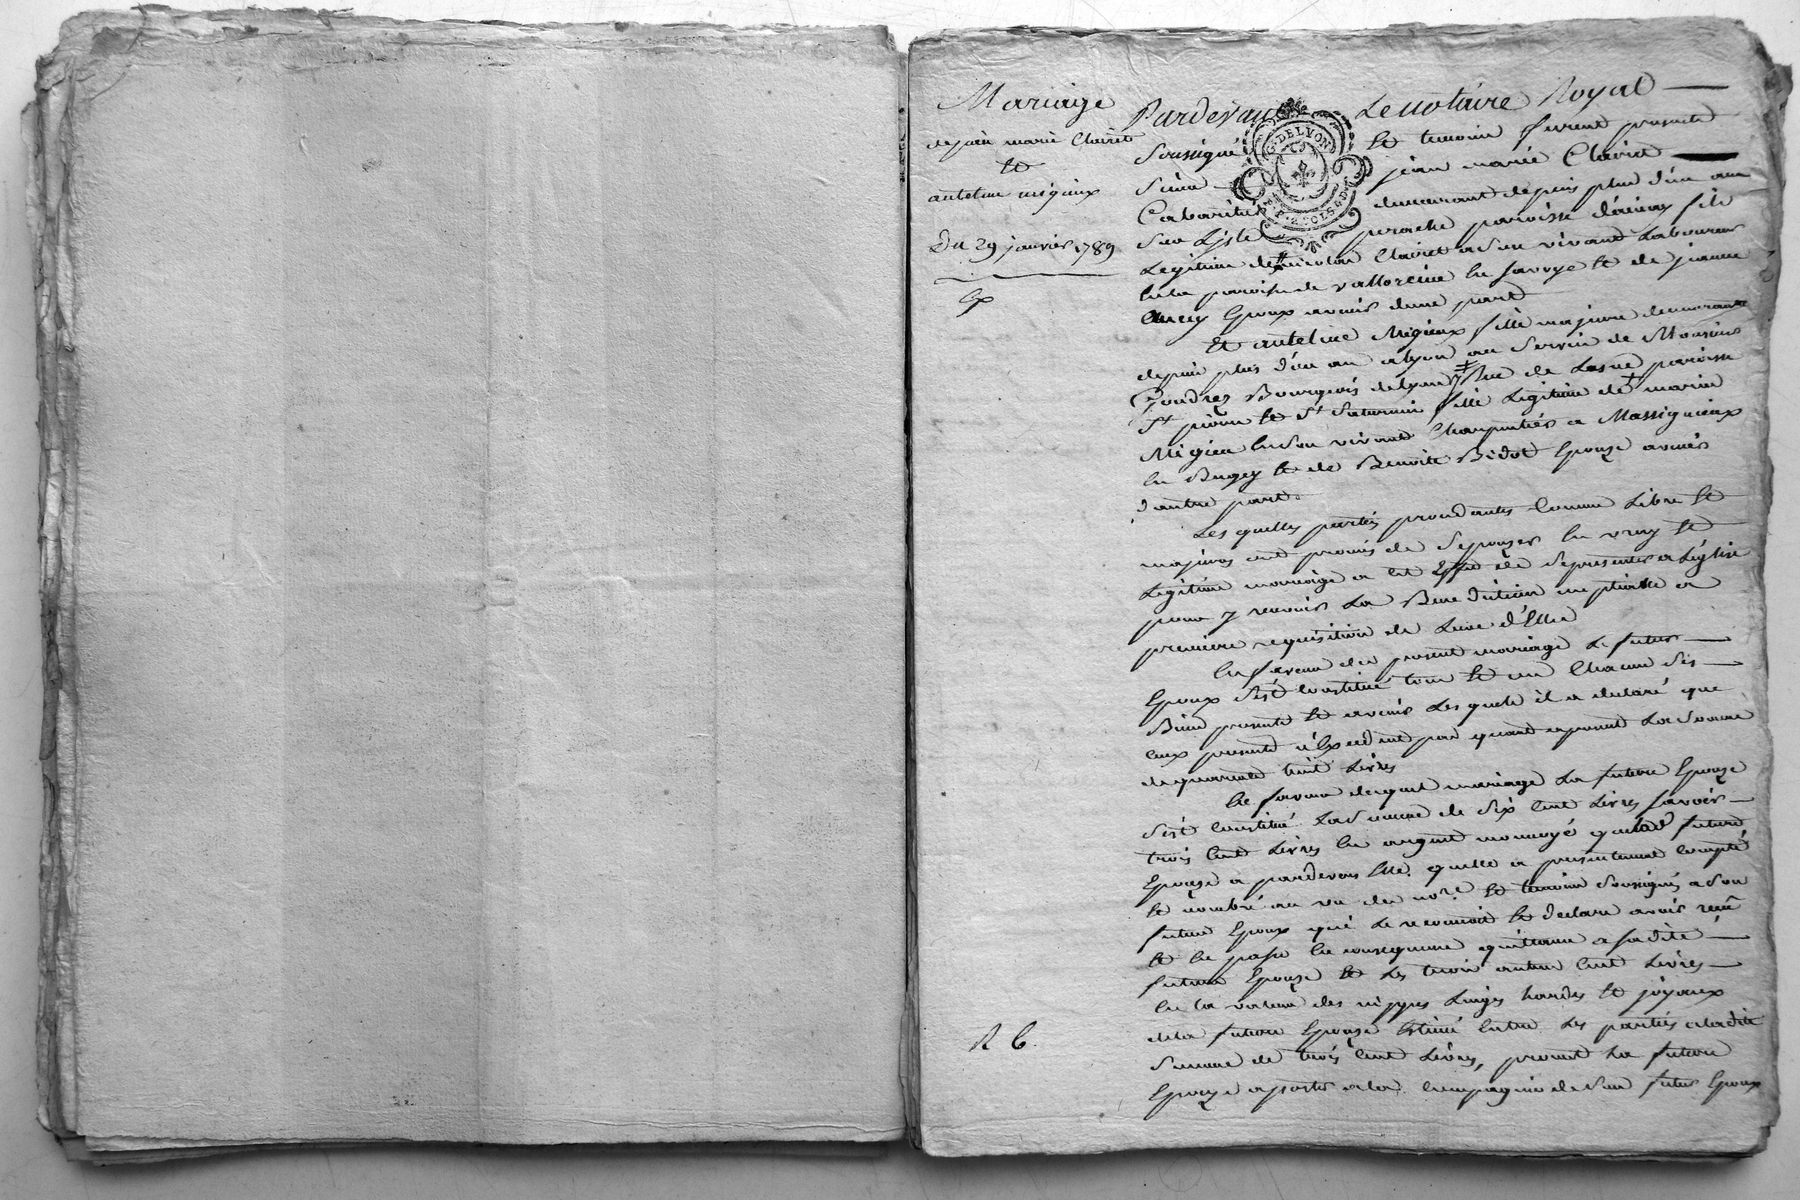 Mariage
de jean marie Clairet
et
anteline migieux
Du 29 janvier 1789
Ex
R 6
Pardevant Le notaire Royal
Soussigné et temoins furent presents
Sieur jean marie Clairet
Cabaretier demeurant depuis plus d'un an
Sur Lisle perache paroisse d'ainay fils
Legitime de nicolas Clairet a Son vivant Laboureur
en la paroisse de valorcine en Savoye et de jeanne
Epoux avenir d'une part
G. DE LYON
2 SOLS 8 D
Et anteline Migieux fille majeure demeurante
depuis plus d'un an a lyon au Service de Monsieur
Bourgeois de lyon rue de paroisse
St pierre et St Saturnin fille Legitime de marin
Migieu en Son vivant Charpentier a Massignieux
en Bugey et de Benoite Bidot Epouze avenir
d'autre part.
Les quelles parties procedantes Comme Libre et
majeures ont promis de S'epouzer en vray et
Legitime mariage a cet Effet de Se presenter a L'église
pour y recevoir La Benediction nuptialle a
premiere requisition de L'une d'Elle
En faveur du present mariage Le futur
Epoux S'est Constitué tous et un Chacun Ses
Biens presents et avenir Les quels il a declaré que
ceux presents n'Excedent pas quant apresent La Somme
de quarante huit Livres
En faveur du quel mariage La future Epouze
S'est Constitué La Somme de Six Cent Livres Savoir
trois Cent Livres en argent monnoyé que lad. future
Epouze a pardevers Elle, quelle a presentement Compté
et nombré au vu du nore. et temoins Soussignés a Son
futur Epoux qui Le reconnoit et declare avoir reçu
et en passe en consequence quittance a sa dite
future Epouze et Les trois autres Cent Livres
en la valeur des nippes Linges hardes et joyaux
de la future Epouze Estimé Entre Les parties a la dite
Somme de trois Cent Livres, promet La future
Epouze aporter a la Compagnie de Son futur Epoux